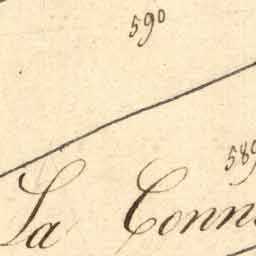 590
589
La Conn